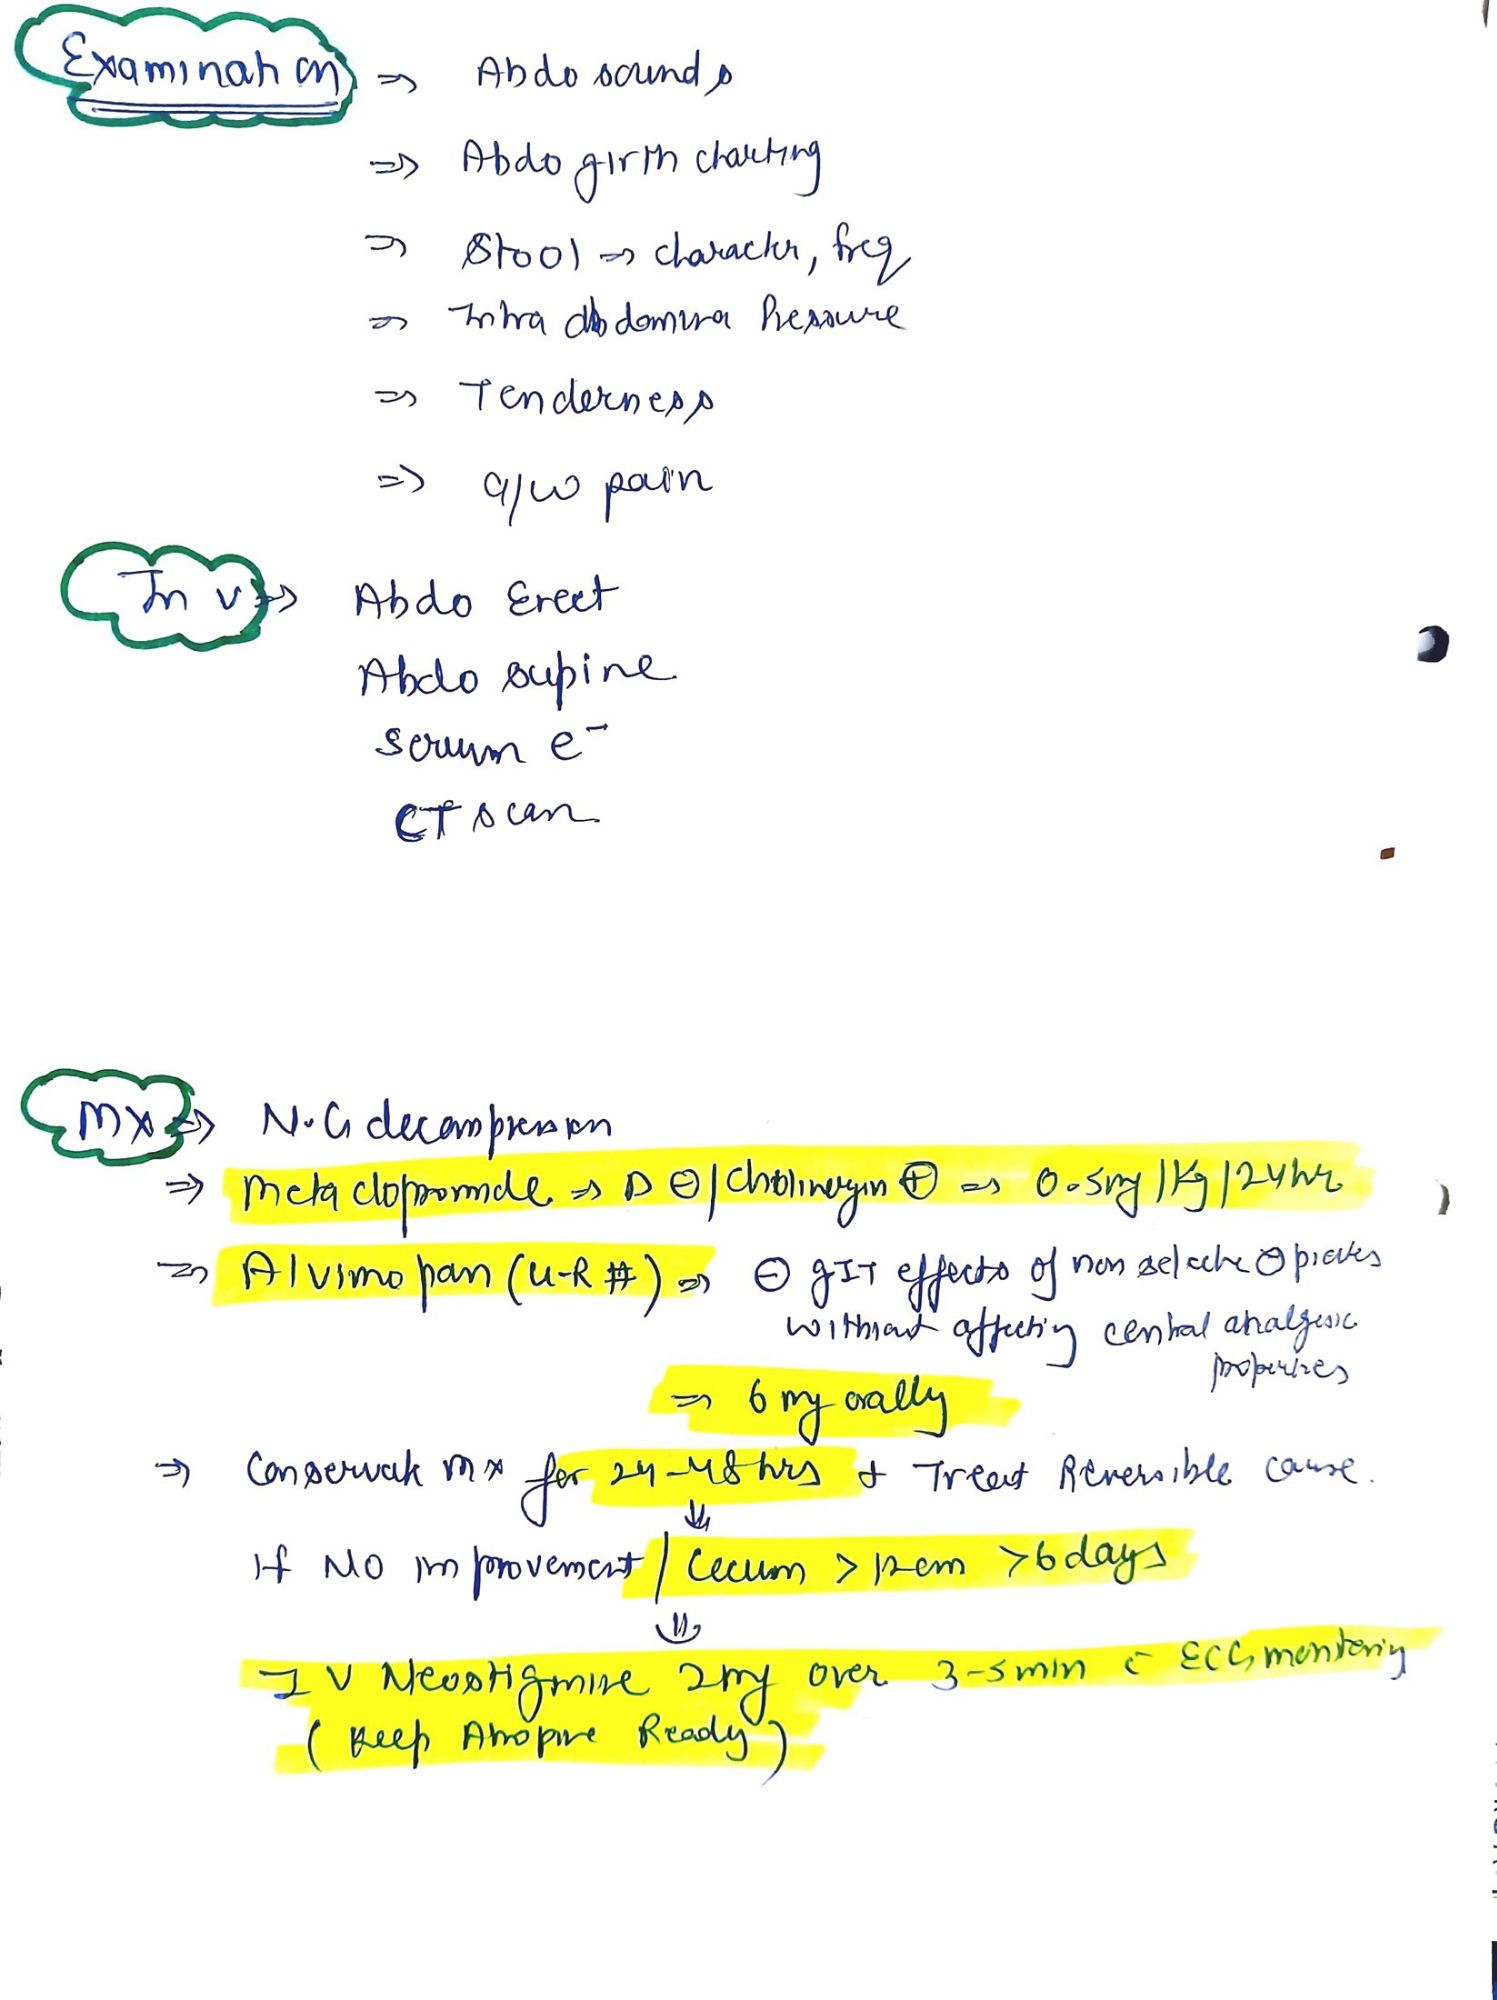 Examination ⇒ Abdo sounds
⇒ Abdo girth charting
⇒ Stool ⇒ character, freq
⇒ Intra abdomina Pressure
⇒ Tenderness
⇒ a/w pain
Inv ⇒ Abdo Erect
Abdo supine
Serum e⁻
CT scan
Mx ⇒ N.G decompression
⇒ Metaclopromide ⇒ D ⊖ / Cholinergin ⊕ ⇒ 0.5mg/Kg/24hr
⇒ Alvimopan (U-R #) ⇒ ⊖ GIT effects of non selective Opiates
without affecting central analgesic
properties
⇒ 6 mg orally
⇒ Conservate Mx for 24-48 hrs & Treat Reversible cause.
If NO improvement / Cecum > 12cm > 6 days
IV Neostigmine 2mg over 3-5 min c̄ ECG monitoring
(Keep Atropine Ready)